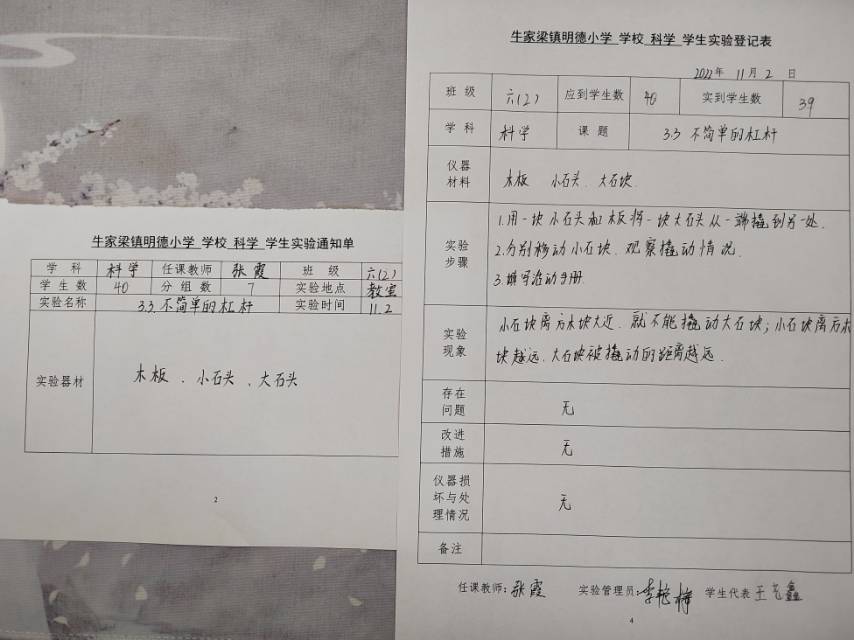 牛家梁镇明德小学 学校 科学 学生实验通知单
学 科 科学 任课教师 张霞 班 级 六(2)
学 生 数 40 分 组 数 7 实验地点 教室
实验名称 3.3 不简单的杠杆 实验时间 11.2
实验器材 木板 、小石头 、大石头
2
牛家梁镇明德小学 学校 科学 学生实验登记表
2022年 11月 2 日
班 级 六(2) 应到学生数 40 实到学生数 39
学 科 科学 课 题 3.3 不简单的杠杆
仪器
材料
木板 小石头、大石块.
实验
步骤
1.用一块小石头和木板将一块大石头从一端撬到另一处.
2.分别移动小石块、观察撬动情况.
3.填写活动手册.
实验
现象
小石块离方木块太近、就不能撬动大石块;小石块离方木
块越远、大石块被撬动的距离越远.
存在
问题
无
改进
措施
无
仪器损
坏与处
理情况
无
备注
任课教师:张霞 实验管理员: 学生代表
4